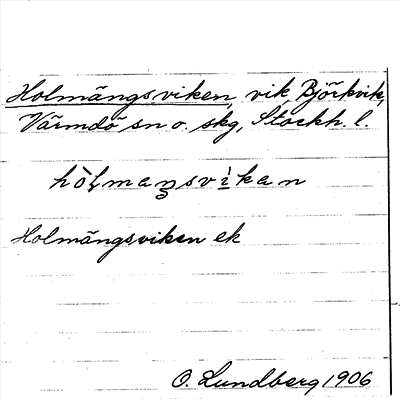 Holmängsviken, vik, Björkvik,
Värmdö sn o. skg, Stockh. l.
hòlmaŋsvìkan
Holmängsviken ek
O. Lundberg 1906